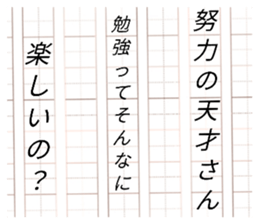 努力の天才さん
勉強ってそんなに
楽しいの？